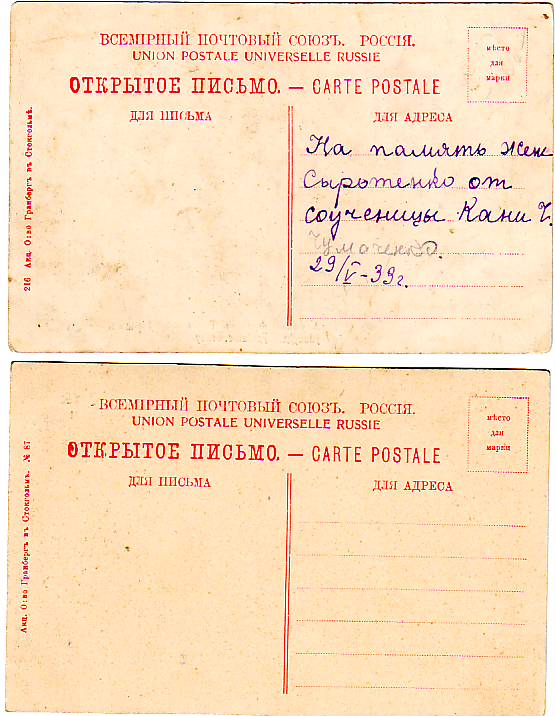 ВСЕМІРНЫЙ ПОЧТОВЫЙ СОЮЗЪ. РОССІЯ.
UNION POSTALE UNIVERSELLE RUSSIE
ОТКРЫТОЕ ПИСЬМО. — CARTE POSTALE
мѣсто
для
марки
ДЛЯ ПИСЬМА
ДЛЯ АДРЕСА
На память Жене
Сыротенко от
соученицы Кани Ч.
Чумаченко.
29/V-39г.
216 Акц. О-во Гранбергъ въ Стокгольмѣ.
ВСЕМІРНЫЙ ПОЧТОВЫЙ СОЮЗЪ. РОССІЯ.
UNION POSTALE UNIVERSELLE RUSSIE
ОТКРЫТОЕ ПИСЬМО. — CARTE POSTALE
мѣсто
для
марки
ДЛЯ ПИСЬМА
ДЛЯ АДРЕСА
Акц. О-во Гранбергъ въ Стокгольмѣ. № 87